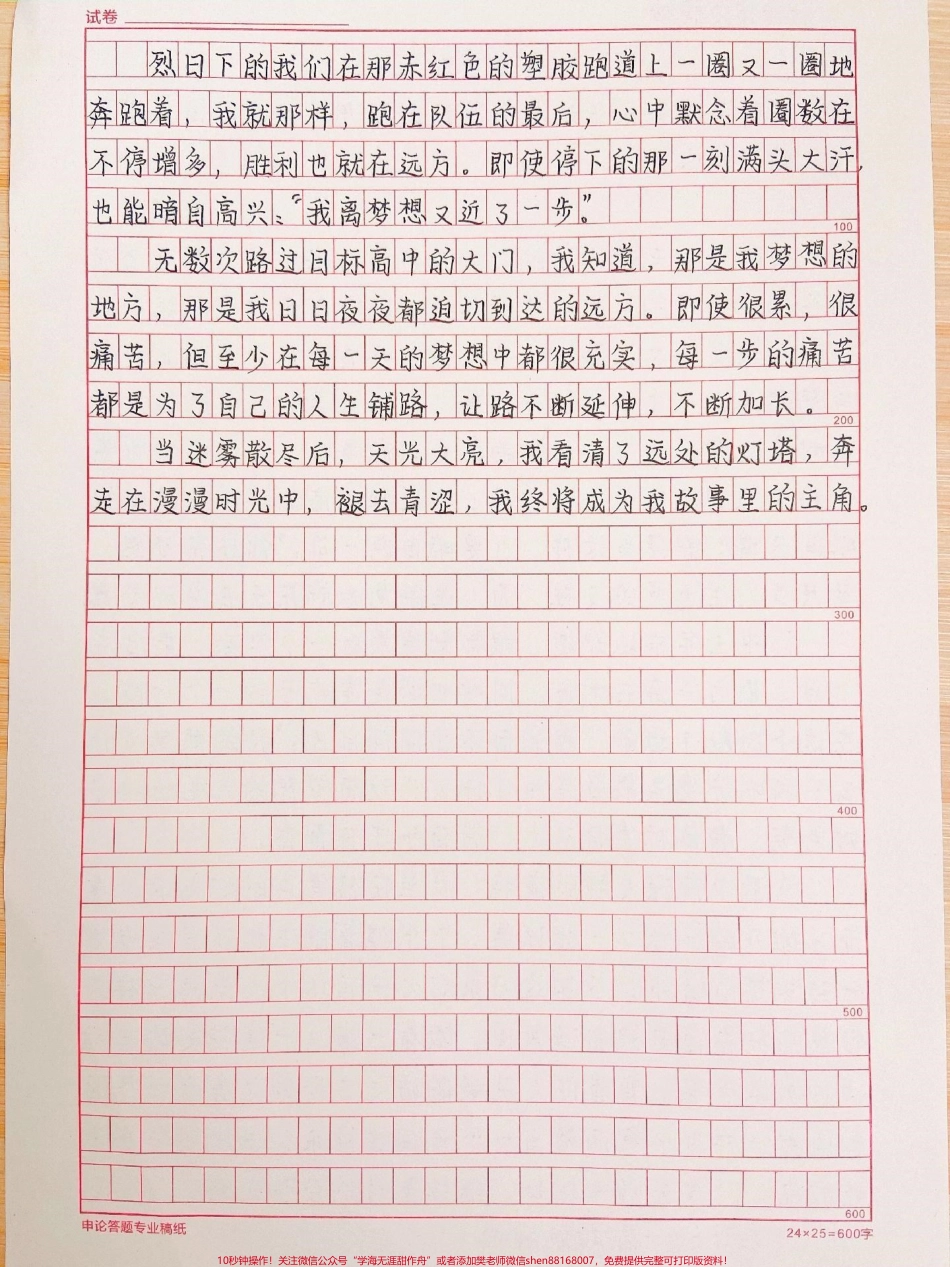 试卷
烈日下的我们在那赤红色的塑胶跑道上一圈又一圈地
奔跑着，我就那样，跑在队伍的最后，心中默念着圈数在
不停增多，胜利也就在远方。即使停下的那一刻满头大汗，
也能暗自高兴：“我离梦想又近了一步。”
100
无数次路过目标高中的大门，我知道，那是我梦想的
地方，那是我日日夜夜都迫切到达的远方。即使很累，很
痛苦，但至少在每一天的梦想中都很充实，每一步的痛苦
都是为了自己的人生铺路，让路不断延伸，不断加长。
200
当迷雾散尽后，天光大亮，我看清了远处的灯塔，奔
走在漫漫时光中，褪去青涩，我终将成为我故事里的主角。
300
400
500
600
申论答题专业稿纸
24×25=600字
10秒钟操作！关注微信公众号“学海无涯甜作舟”或者添加樊老师微信shen88168007，免费提供完整可打印版资料！